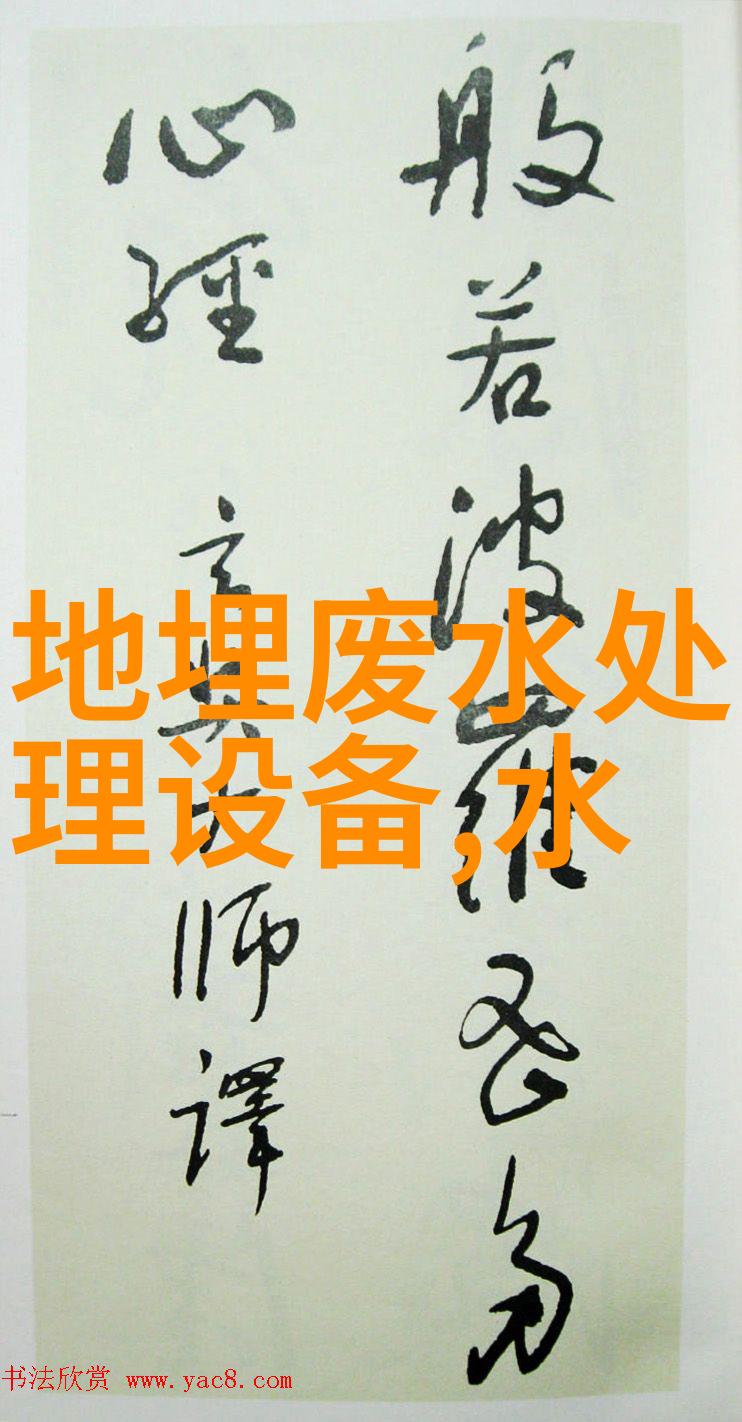 般若波羅密多
心經 玄奘大師譯
地埋废水处
理设备,水
书法欣赏 www.yac8.com